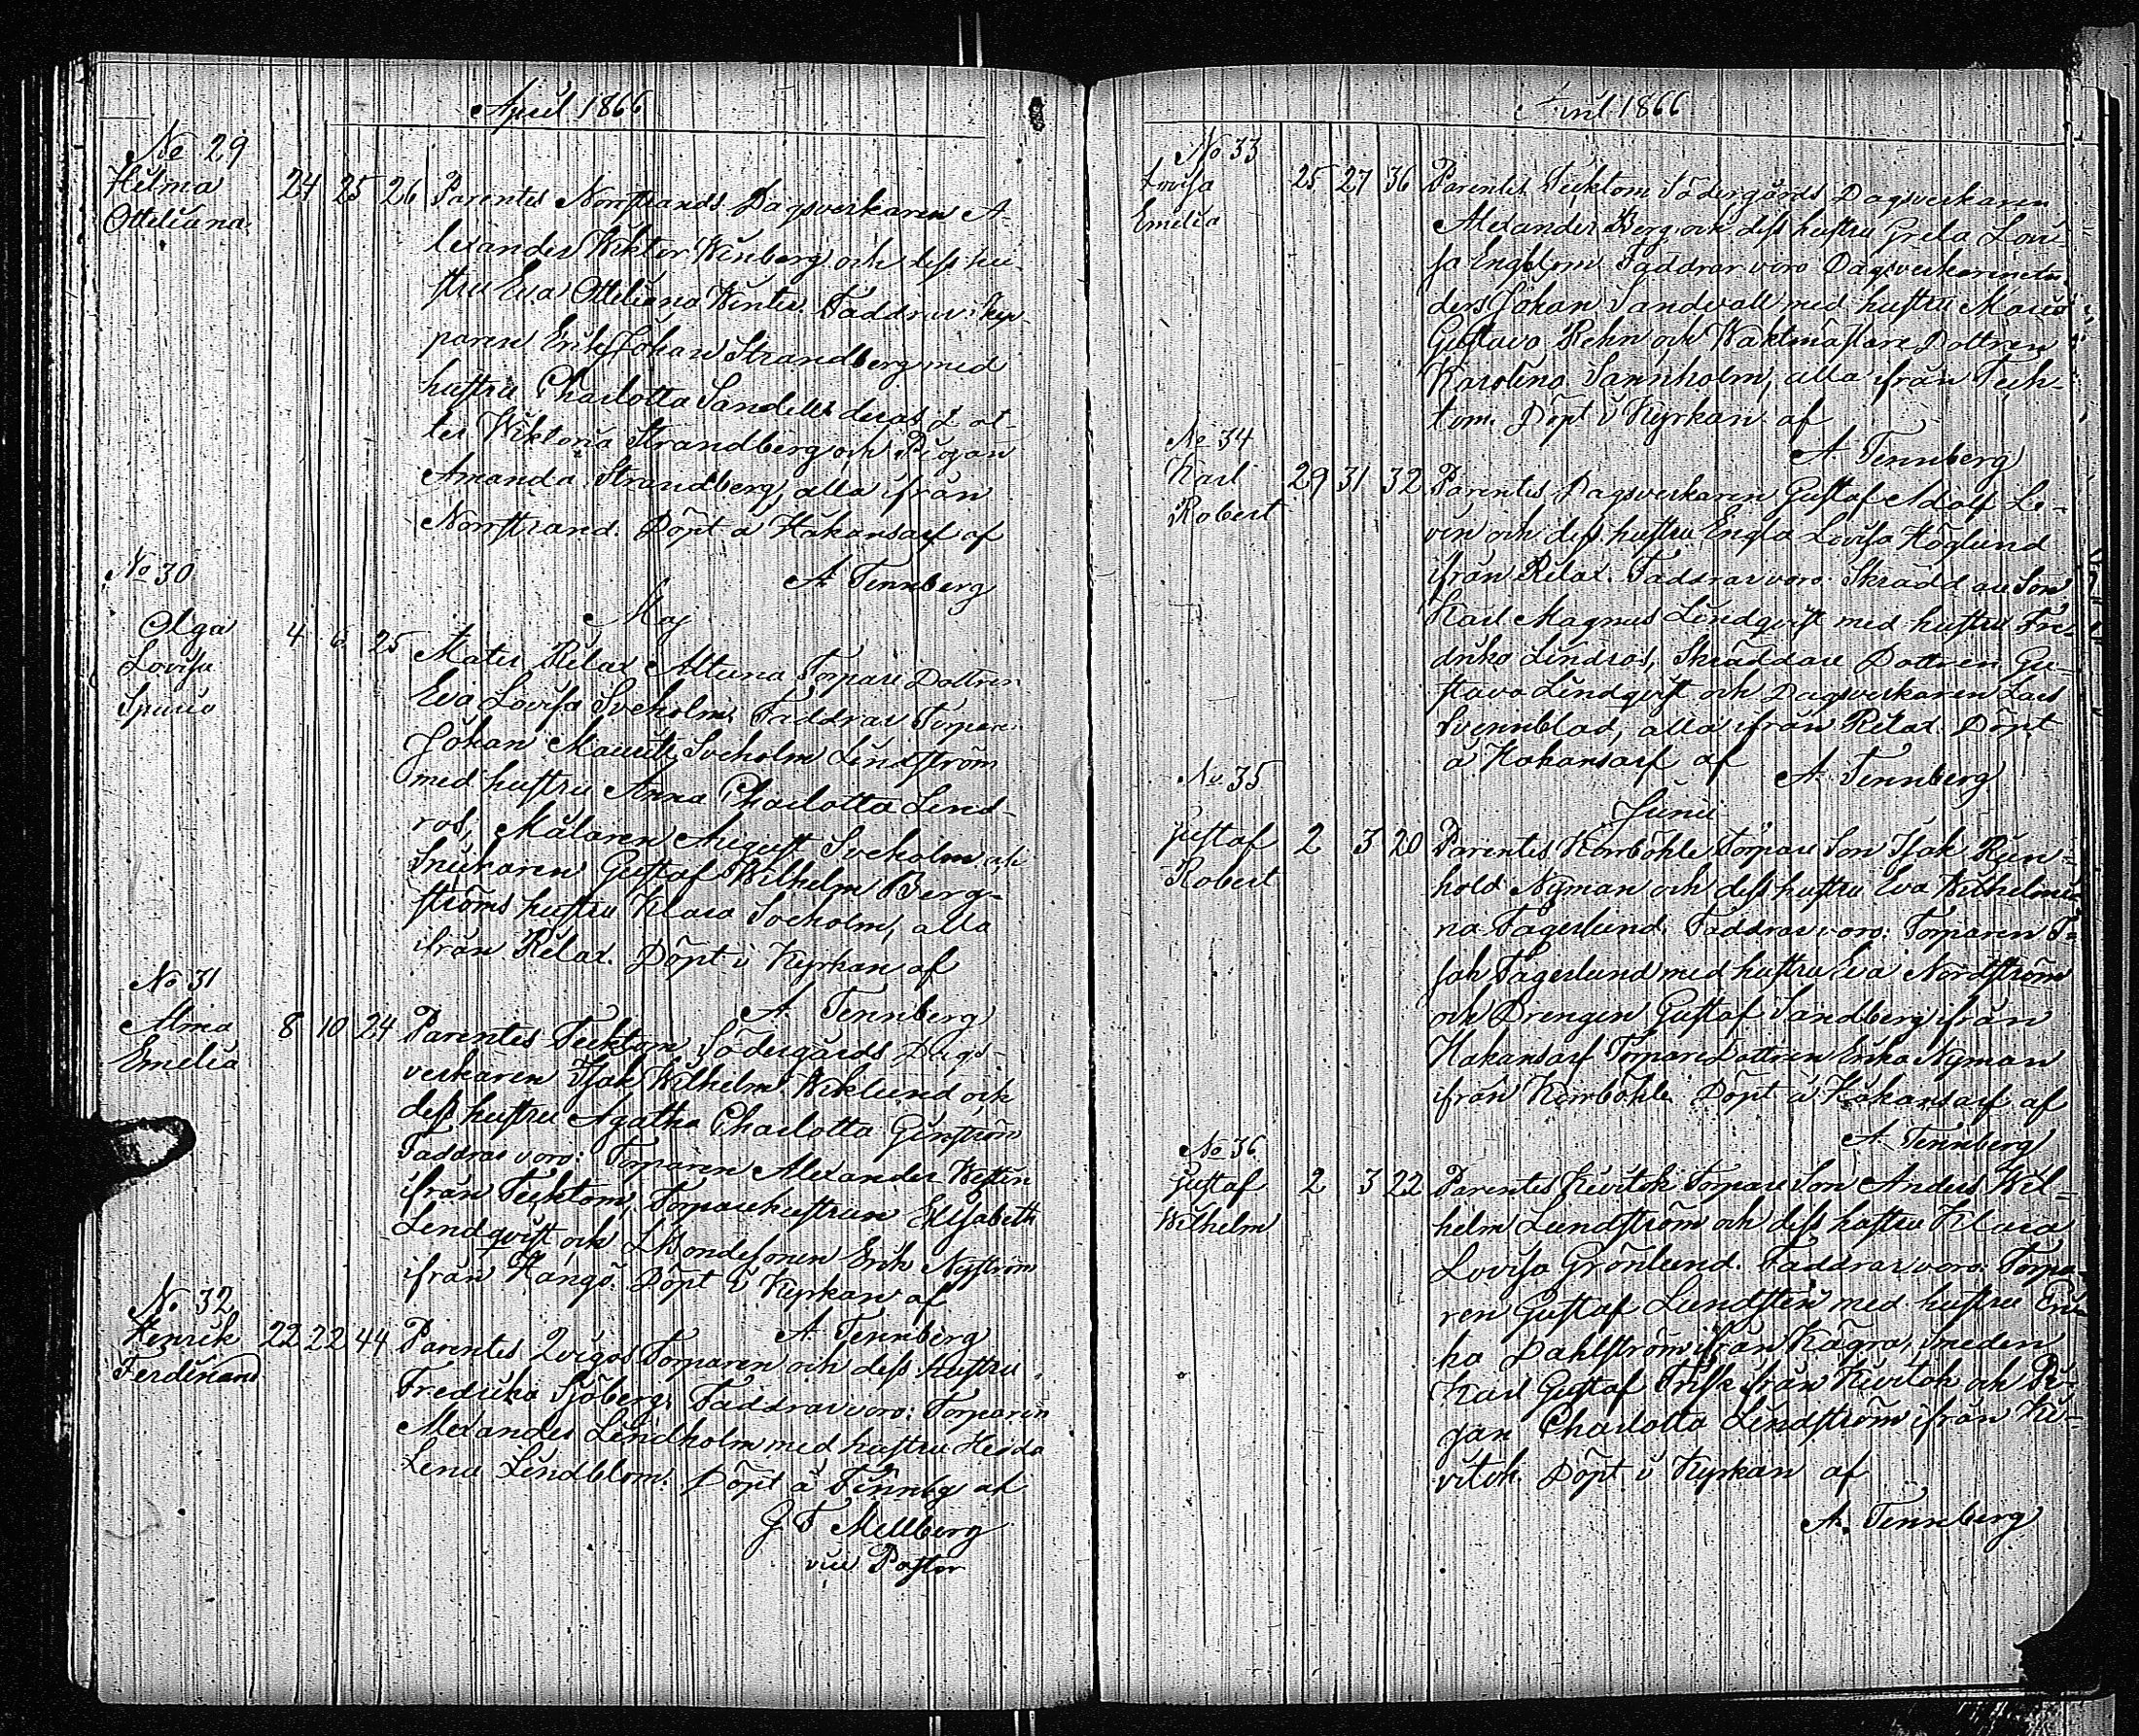 April 1866
No 29
Helma 24 25 26 Parentes Norrstrands Dagsverkaren A-
Otteliana lexander Wiktor Winberg och dess hu-
stru Eva Otteliana Winter. Faddrar:
paren Erik Johan Strandberg med
hustru Charlotta Sandell deras Dot-
ter Wiktoria Strandberg och Pigan
Amanda Strandberg, alla ifrån
Norrstrand. Döpt å Håkansarf af
A Tennberg
No 30
Maj
Olga 4 6 25 Mater, Rilax Alluna Torpare Dottren
Lovisa Eva Lovisa Sveholm. Faddrar Torparen
Spuria Johan Mauritz Sveholm Lindström
med hustru Anna Charlotta Lind-
ros, Målaren August Sveholm och
Snickaren Gustaf Wilhelm Berg-
ströms hustru Klara Sveholm, alla
ifrån Rilax. Döpt i Kyrkan af
A Tennberg
No 31
Alma 8 10 24 Parentes Tecktom Södergårds Dags-
Emelia verkaren Isak Wilhelm Wiklund och
dess hustru Agatha Charlotta Ginström
Faddrar voro: Torparen Alexander Westen
ifrån Tecktom, Torparehustrun Elisabeth
Lindqvist och Bondesonen Erik Nyström
ifrån Hangö. Döpt i Kyrkan af
A Tennberg
No 32
Henrik 22 22 44 Parentes Torparen och dess hustru
Ferdinand Fredrika Sjöberg. Faddrar voro: Torparen
Alexander Lindholm med hustru Hedda
Lena Lindblom. Döpt å Finnby af
G F Mellberg
vice Pastor
April 1866
No 33
Lovisa 25 27 36 Parentes Tecktom Södergårds Dagsverkaren
Emelia Alexander Berg och dess hustru Greta Lovi-
sa Engblom Faddrar voro Dagsverkaremån
ders Johan Sandvall med hustru Maria
Gustava Rehn och Waktmästare Dottren
Karolina Sannholm, alla ifrån Teck-
tom. Döpt i Kyrkan af
A Tennberg
No 34
Karl 29 31 32 Parentes Dagsverkaren Gustaf Adolf Le-
Robert vin och dess hustru Engla Lovisa Höglund
ifrån Rilax. Faddrar voro. Skräddare Son
Karl Magnus Lindqvist med hustru Fre-
drika Lindros, Skräddare Dottren Gu-
stava Lindqvist och Dagsverkaren Lars
Svennblad, alla ifrån Rilax. Döpt
å Håkansarf af A Tennberg
No 35
Junii
Gustaf 2 3 20 Parentes Kärrböhle Torpare Son Isak Rein-
Robert hold Nyman och dess hustru Eva Wilhelmi-
na Fagerlund. Faddrar voro: Torparen I-
sak Fagerlund med hustru Eva Nordström
och Drengen Gustaf Sandberg ifrån
Håkansarf Torpare Dottren Erika Nyman
ifrån Kärrböhle. Döpt å Håkansarf af
A Tennberg
No 36
Gustaf 2 3 22 Parentes Kivitok Torpare Son Anders Wil-
Wilhelm helm Lundström och dess hustru Klara
Lovisa Grönlund. Faddrar voro: Torpa-
ren Gustaf Lundsten med hustru Eri-
ka Dahlström ifrån Kägra, Smeden
Karl Gustaf Frisk ifrån Kivitok och Pi-
gan Charlotta Lindström ifrån Ki-
vitok Döpt i Kyrkan af
A. Tennberg